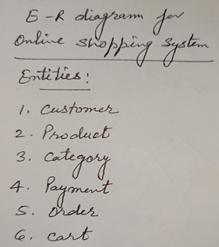 E-R diagram for
Online shopping System
Entities:
1. Customer
2. Product
3. Category
4. Payment
5. Order
6. Cart